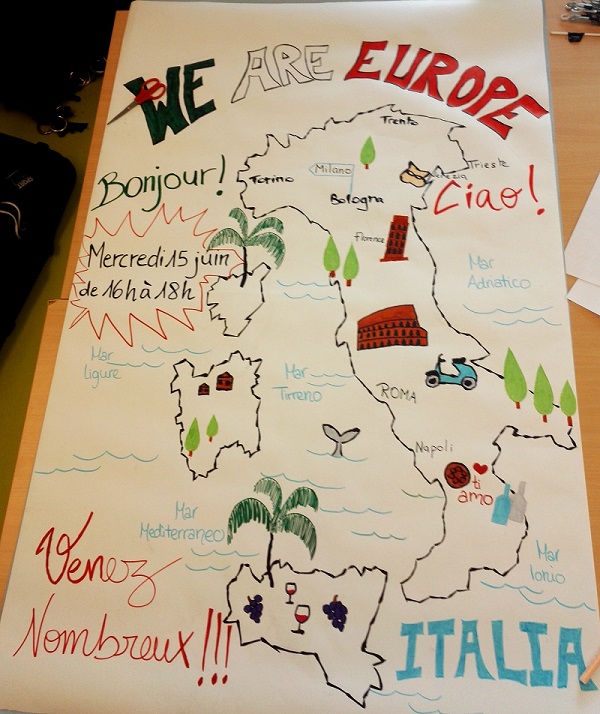 WE ARE EUROPE
Bonjour!
Ciao!
Mercredi 15 juin
de 16h à 18h
Trento
Trieste
Milano
Venezia
Torino
Bologna
Florence
Mar
Adriatico
Mar
Ligure
Mar
Tirreno
ROMA
Napoli
ti
amo
Mar
Mediterraneo
Mar
Ionio
Venez
Nombreux!!!
ITALIA